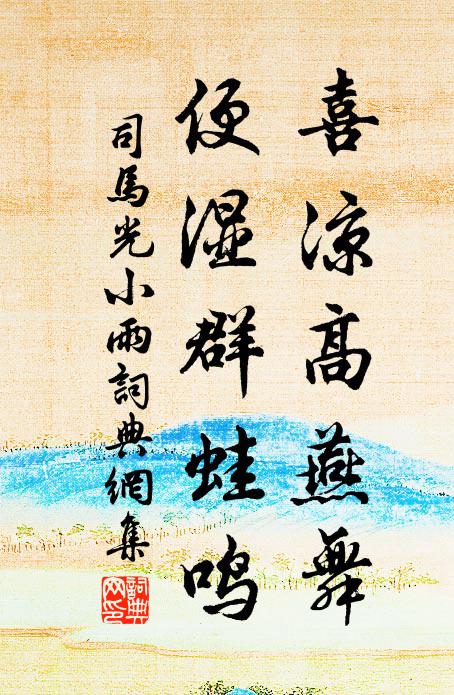 喜涼高燕舞
便湿群蛙鸣
司馬光小雨詞典網集